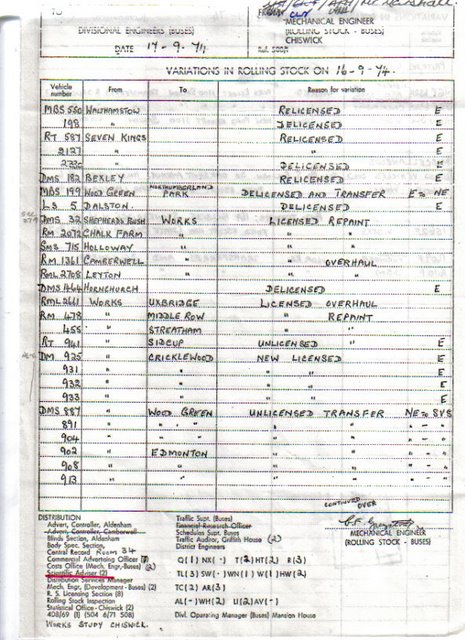 TO
DIVISIONAL ENGINEERS (BUSES)
DATE 17-9-74
FROM
MECHANICAL ENGINEER
(ROLLING STOCK - BUSES)
CHISWICK
VARIATIONS IN ROLLING STOCK ON 16-9-74.
Vehicle number From To Reason for variation
MBS 550 WALTHAMSTOW RELICENSED E
198 " DELICENSED E
RT 587 SEVEN KINGS RELICENSED E
2127 " " E
" DELICENSED E
DMS 182 BEXLEY RELICENSED E
MBS 199 WOOD GREEN NORTHUMBERLAND PARK DELICENSED AND TRANSFER E TO NE
LS 5 DALSTON. DELICENSED E
DMS 32 SHEPHERDS BUSH WORKS LICENSED REPAINT
RM 2072 CHALK FARM " " "
SMS 715 HOLLOWAY " " "
RM 1361 CAMBERWELL " " OVERHAUL
RML 2708 LEYTON " " "
DMS 1464 HORNCHURCH DELICENSED E
RML 2661 WORKS UXBRIDGE LICENSED OVERHAUL
RM 478 " MIDDLE ROW " REPAINT
455 " STREATHAM " "
RT 941 " SIDCUP UNLICENSED " E
DM 925 " CRICKLEWOOD NEW LICENSED E
931 " " " " E
932 " " " " E
933 " " " " E
DMS 887 WOOD GREEN UNLICENSED TRANSFER NE TO SVS
891 " " " " " " "
904 " " " " " " "
902 " EDMONTON " " " " "
908 " " " " " " "
913 " " " " " " "
CONTINUED OVER
DISTRIBUTION
Advert. Controller, Aldenham
Advert. Controller, Camberwell
Blinds Section, Aldenham
Body Spec. Section,
Central Record ROOM 34
Commercial Advertising Officer
Costs Office (Mech. Engr.-Buses) (2)
Scientific Adviser (2)
Distribution Services Manager
Mech. Engr. (Development - Buses) (2)
R. S. Licensing Section (8)
Rolling Stock Inspection
Statistical Office - Chiswick (2)
408/69 (1) (504 6/71 508)
WORKS STUDY CHISWICK.
Traffic Supt. (Buses)
Financial Research Officer
Schedules Supt. Buses
Traffic Auditor, Griffith House (2)
District Engineers
Q(1) NX(·) T(2) HT(2) R(3)
TL(3) SW(·) WN(1) W(1) HW(2)
TC(2) AR(3)
AL(-) WH(2) U(2) AV(-)
Divl. Operating Manager (Buses) Mansion House
MECHANICAL ENGINEER
(ROLLING STOCK - BUSES)